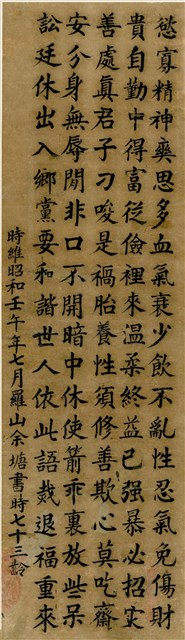 慾寡精神爽思多血氣衰少飲不亂性忍氣免傷財
貴自勤中得富從儉裡來温柔終益已强暴必招灾
善處真君子刁唆是禍胎養性須修善欺心莫吃齋
安分身無辱閒非口不開暗中休使箭乖裏放些呆
訟廷休出入鄉黨要和諧世人依此語烖退福重來
時維昭和壬午年七月羅山余塘書時七十三齡